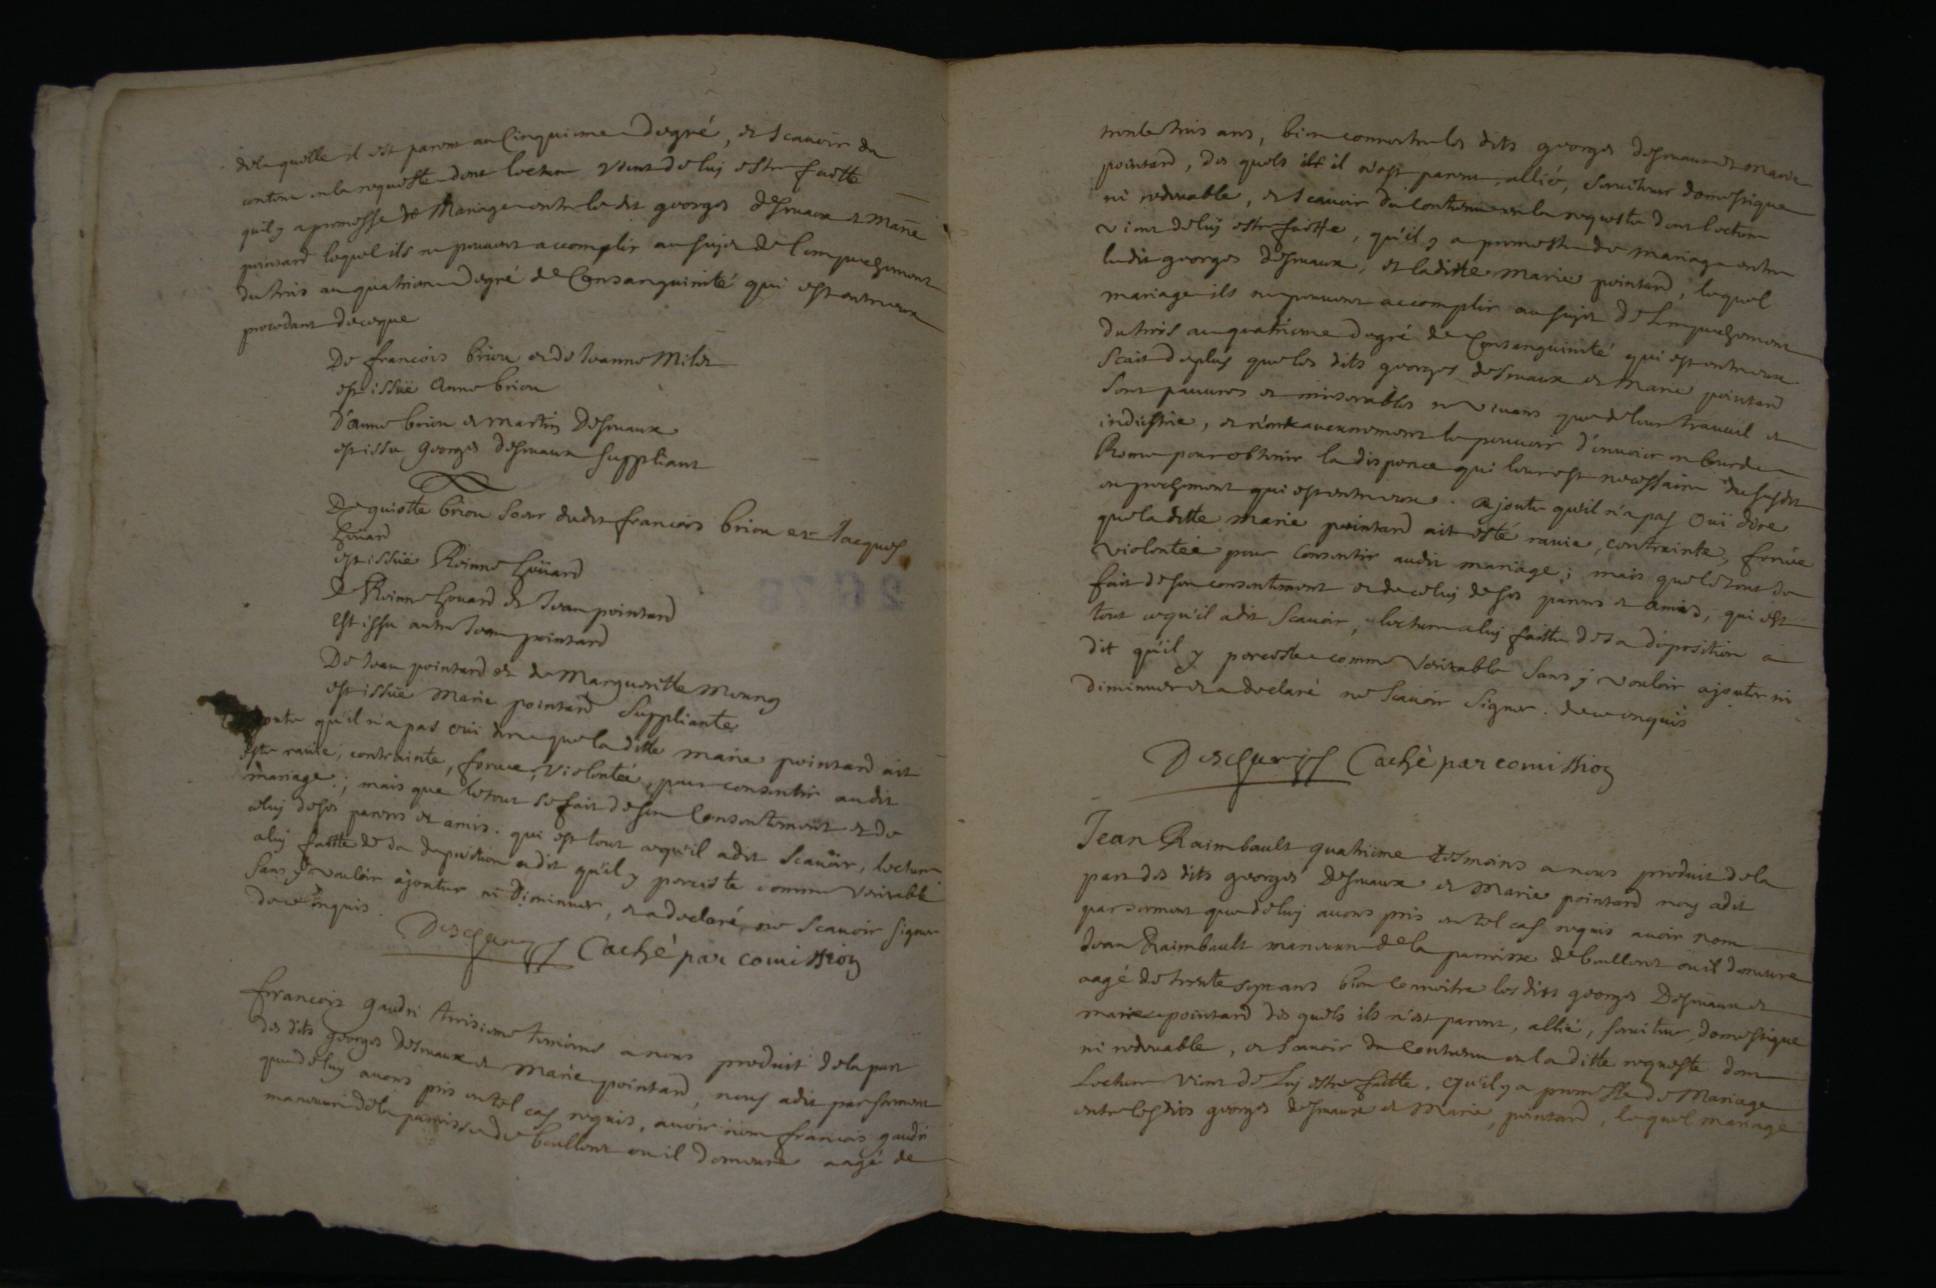 de laquelle il est parent au Cinquieme degré, et scavoir du
contenu en la requeste dont lecture vient de luy estre faitte
quil y a promesse de Mariage entre le dit georges desmaux et Marie
pointard lequel ils ne peuvent accomplir au sujet de l'empechement
du trois au quatrieme degré de Consanguinité qui est entre eux
procedant de ceque
De francois briou et de Jeanne Milet
est issuë anne briou
D'anne briou et martin Desmaux
est issu georges desmaux suppliant
De guiotte briou soeur dudit francois briou et Jacques
houard
est issuë Reinne houard
De Reinne houard et Jean pointard
est issu autre Jean pointard
De Jean pointard et de Margueritte
est issuë Marie pointard Suppliante
qu'il n'a pas oui dire que la ditte marie pointard ait
esté ravie, contrainte, forcée, violentée, pour consentir audit
mariage ; mais que le tout se fait de son Consentement et de
celuy de ses parens et amis. qui est tout ce qu'il a dit Scavoir, lecture
a luy faitte de sa deposition a dit qu'il y perciste comme veritable
sans y vouloir ajouter ni Diminuer, et a declaré ne scavoir signer
de ce enquis.
Caché par comission
francois gaudri troisieme temoins a nous produit de la part
des dits georges desmaux et marie pointard, nous a dit par serment
que de luy avons pris en tel cas requis, avoir nom francois gaudri
manoeuvre de la parroisse de boullont ou il demeure aagé de
trente trois ans, bien connoitre les dits georges desmaux et marie
pointard, des quels ils il n'est parent, allié, serviteur domestique
ni redevable, et scavoir du contenu en la requeste dont lecture
vient de luy estre faitte, qu'il y a promesse de mariage entre
ledit georges desmaux, et laditte marie pointard, lequel
mariage ils ne peuvent accomplir au sujet de l'empechement
du trois au quatrieme degré de Consanguinité qui est entre eux
scait de plus que les dits georges desmaux et Marie pointard
sont pauvres et miserables ne vivans que de leur travail et
industrie, et n'ont aucunement le pouvoir d'envoier en Cour de
Rome pour obtenir la dispence qui leur est necessaire du susdit
empechement qui est entre eux. ajoute qu'il n'a pas Oui dire
que la ditte marie pointard ait esté ravie, contrainte, forcée
violentée pour consentir audit mariage ; mais que le tout se
fait de son consentement et de celuy de ses parens et amis, qui est
tout ce qu'il a dit scavoir, lecture a luy faitte de sa deposition a
dit qu'il y perciste comme veritable sans y vouloir ajouter ni
diminuer et a declaré ne scavoir signer. de ce enquis
Caché par comission
Jean Raimbault quatrieme tesmoins a nous produit de la
part des dits georges desmaux et Marie pointard nous a dit
par serment que de luy avons pris en tel cas requis avoir nom
Jean Raimbault manoeuvre de la parroisse de boullont ou il demeure
aagé de trente sept ans bien connoitre les dits georges Desmaux et
marie pointard des quels ils n'est parent, allié, serviteur, domestique
ni redevable, et scavoir du Contenu en la ditte requeste dont
Lecture vient de Luy estre faitte, qu'il y a promesse de Mariage
entre lesdits georges desmaux et Marie pointard, lequel mariage